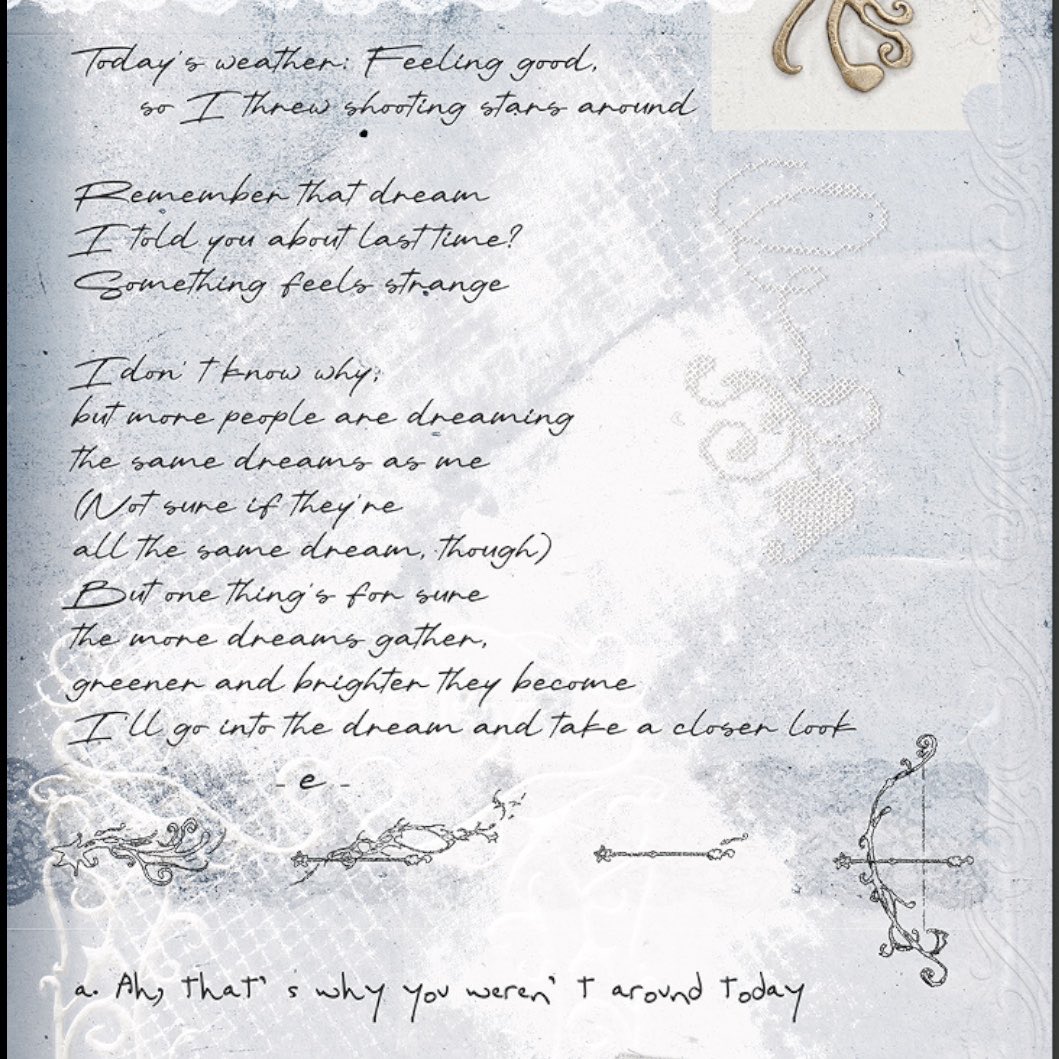 Today's weather: Feeling good,
so I threw shooting stars around
Remember that dream
I told you about last time?
Something feels strange
I don't know why;
but more people are dreaming
the same dreams as me
(Not sure if they're
all the same dream, though)
But one thing's for sure
the more dreams gather,
greener and brighter they become
I'll go into the dream and take a closer look
- e -
a. Ah, that's why you weren't around today